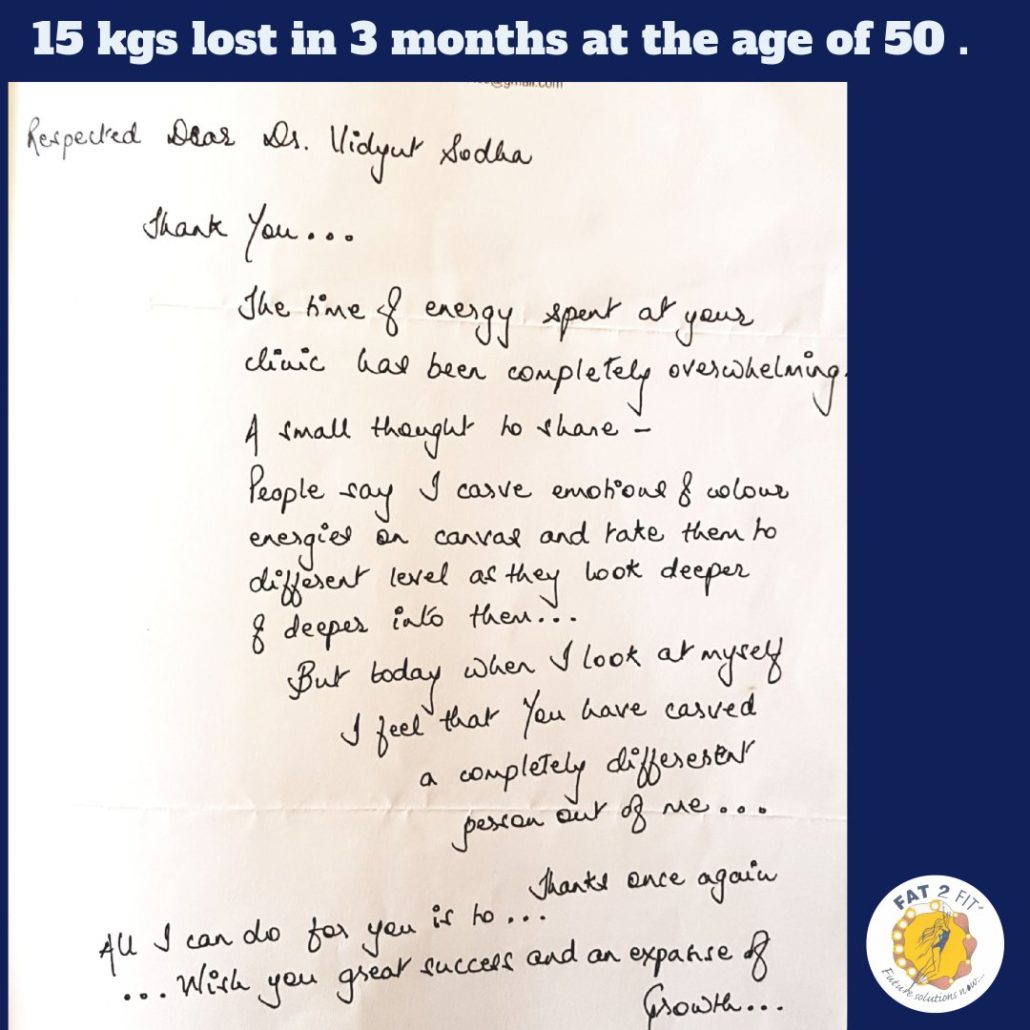 15 kgs lost in 3 months at the age of 50 .
@gmail.com
Respected Dear Dr. Vidyut Sodha
Thank You...
The time & energy spent at your
clinic has been completely overwhelming.
A small thought to share –
People say I carve emotions & colour
energies on canvas and take them to
different level as they look deeper
& deeper into them...
But today when I look at myself
I feel that You have carved
a completely different
person out of me...
Thanks once again
All I can do for you is to...
... Wish you great success and an expanse of
Growth...
FAT 2 FIT
Future solutions now...